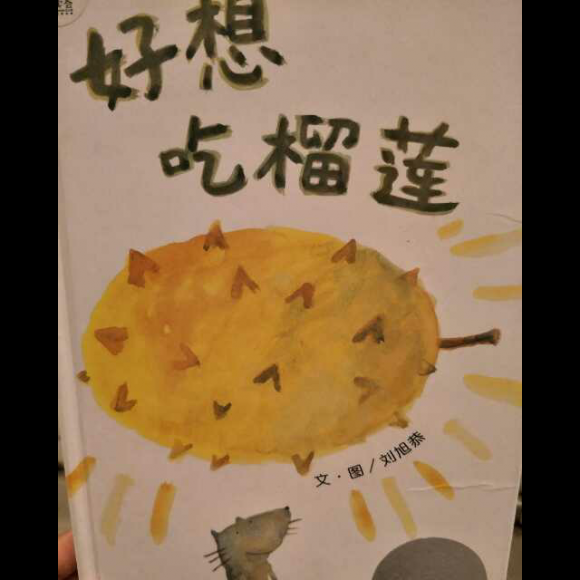 好想
吃榴莲
文·图/刘旭恭